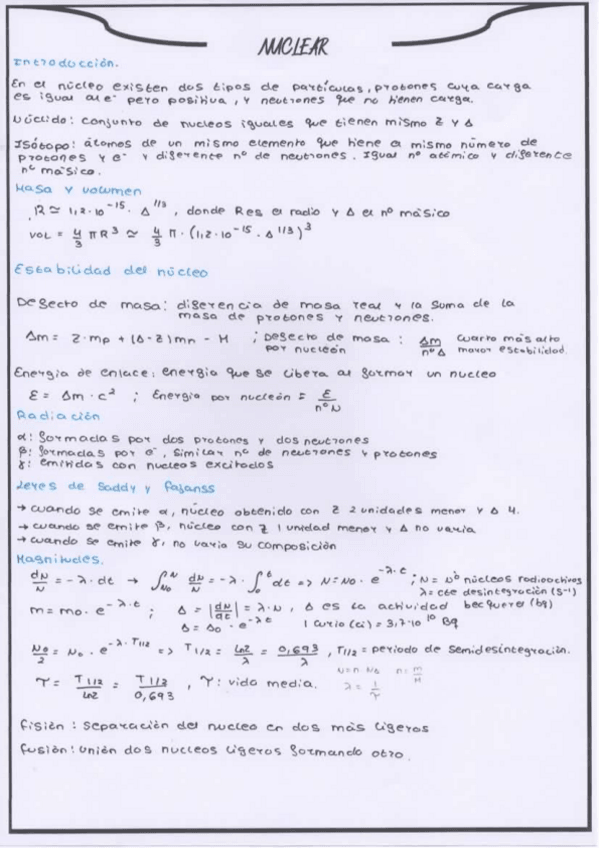 NUCLEAR
Introducción.
En el núcleo existen dos tipos de partículas, protones cuya carga
es igual al e⁻ pero positiva, y neutrones que no tienen carga.
Núclido: conjunto de nucleos iguales que tienen mismo Z y A
Isótopo: átomos de un mismo elemento que tiene el mismo número de
protones y e⁻ y diferente nº de neutrones. Igual nº atómico y diferente
nº másico.
Masa y volumen
R ≃ 1,2·10⁻¹⁵ · A^1/3, donde R es el radio y A el nº másico
VOL = 4/3 πR³ ≃ 4/3 π · (1,2·10⁻¹⁵ · A^1/3)³
Estabilidad del núcleo
Defecto de masa: diferencia de masa real y la suma de la
masa de protones y neutrones.
Δm = Z·mp + (A-Z)mn - M ; Defecto de masa por nucleón : Δm/nºA cuanto más alto mayor estabilidad.
Energia de enlace: energia que se libera al formar un nucleo
E = Δm · c² ; Energia por nucleón = E/nºN
Radiación
α: formadas por dos protones y dos neutrones
β: formadas por e⁻, similar nº de neutrones y protones
γ: emitidas con nucleos excitados
Leyes de Soddy y Fajanss
→ cuando se emite α, núcleo obtenido con Z 2 unidades menor y A 4.
→ cuando se emite β, núcleo con Z 1 unidad menor y A no varia
→ cuando se emite γ, no varia su composición
Magnitudes.
dN/N = -λ·dt → ∫_{N₀}^{N} dN/N = -λ·∫_0^t dt => N = N₀ · e^-λ·t ; N = Nº núcleos radioactivos
λ = cte desintegración (s⁻¹)
m = m₀·e^-λ·t ; A = |dN/dt| = λ·N, A es la actividad becquerel (bq)
A = A₀ · e^-λt 1 curio (Ci) = 3,7·10¹⁰ Bq
N₀/2 = N₀ · e^-λ·T1/2 => T1/2 = Ln2/λ = 0,693/λ, T1/2 = periodo de semidesintegración.
N = n·NA n = m/M
τ = T1/2/Ln2 = T1/2/0,693, τ: vida media. λ = 1/τ
Fisión: Separación del nucleo en dos más ligeros
Fusión: Unión dos nucleos ligeros formando otro.